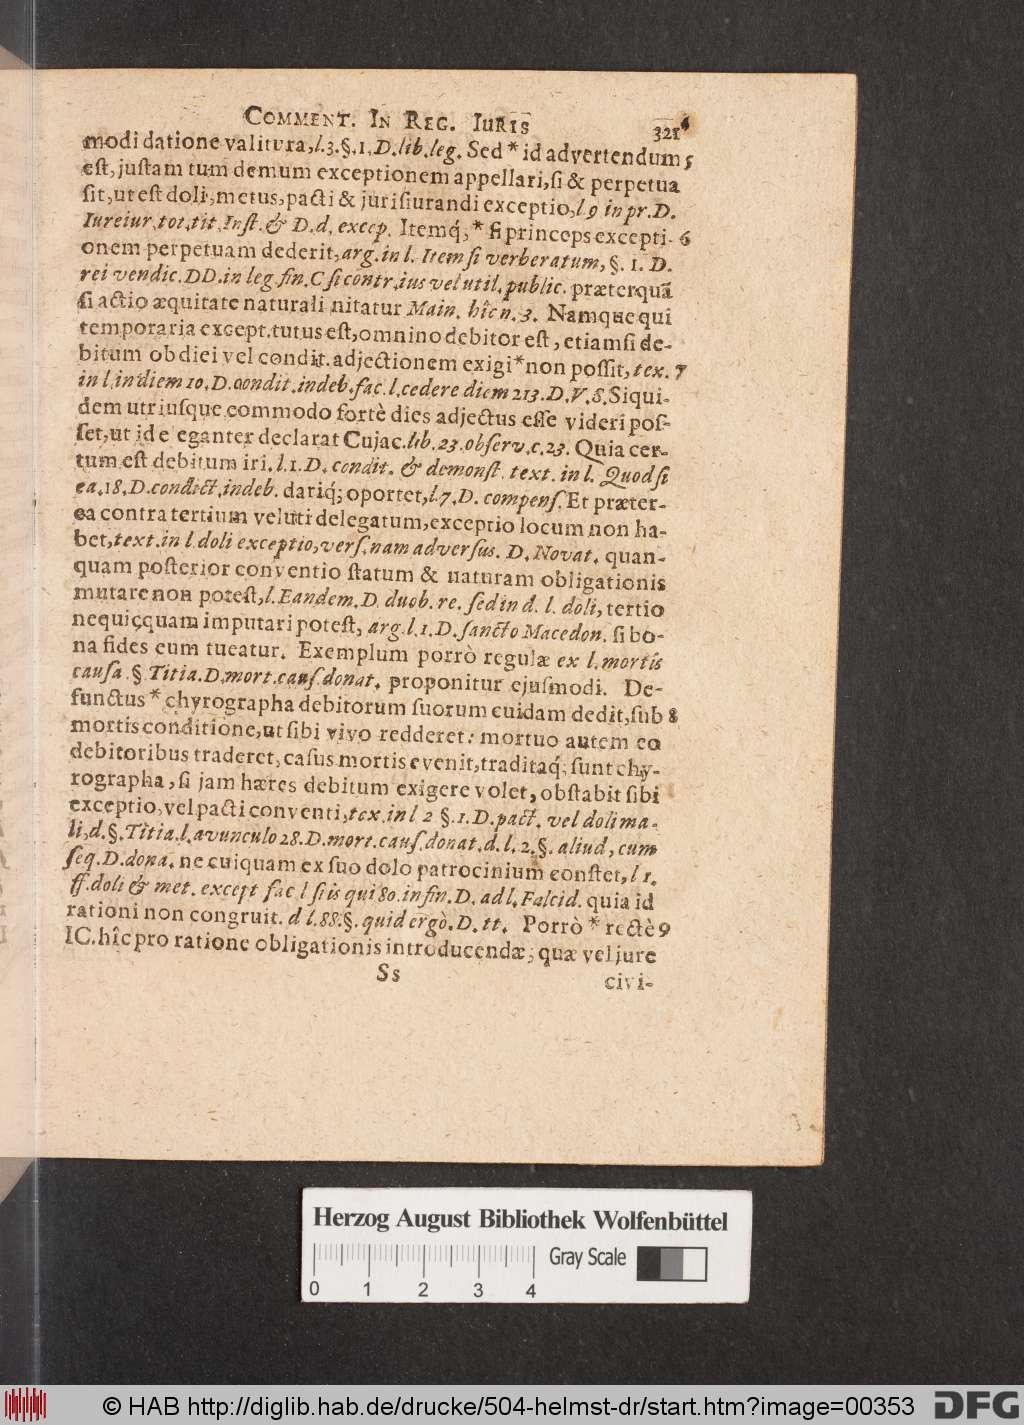 COMMENT. IN REG. IURIS 321
modi datione valitura, l. 3. §. 1. D. lib. leg. Sed * id advertendum 5
est, justam tum demum exceptionem appellari, si & perpetua
sit, ut est doli, metus, pacti & jurisiurandi exceptio, l 9 in pr. D.
Iureiur. tot. tit. Inst. & D. d. excep. Itemq́; * si princeps excepti- 6
onem perpetuam dederit, arg. in l. Item si verberatum, §. 1. D.
rei vendic. DD. in leg fin. C si contr. ius vel util. public. præterquā
si actio æquitate naturali nitatur Main. hîc n. 3. Namque qui
temporaria except. tutus est, omnino debitor est, etiamsi de-
bitum ob diei vel condit. adjectionem exigi * non possit, tex. 7
in l. in diem 10. D. condit. indeb. fac. l. cedere diem 213. D. V. S. Siqui-
dem utriusque commodo fortè dies adjectus esse videri pos-
set, ut id e eganter declarat Cujac. lib. 23. observ. c. 23. Quia cer-
tum est debitum iri. l. 1. D. condit. & demonst. text. in l. Quod si
ea. 18. D. condict. indeb. dariq́; oportet, l. 7. D. compens. Et præter-
ea contra tertium veluti delegatum, exceptio locum non ha-
bet, text. in l. doli exceptio, vers. nam adversus. D. Novat. quan-
quam posterior conventio statum & naturam obligationis
mutare non potest, l. Eandem. D. duob. re. sed in d. l. doli, tertio
nequicquam imputari potest, arg. l. 1. D. sancto Macedon. si bo-
na fides eum tueatur. Exemplum porrò regulæ ex l. mortis
causa. § Titia. D. mort. caus. donat. proponitur ejusmodi. De-
functus * chyrographa debitorum suorum cuidam dedit, sub 8
mortis conditione, ut sibi vivo redderet: mortuo autem eo
debitoribus traderet, casus mortis evenit, traditaq́; sunt chy-
rographa, si jam hæres debitum exigere volet, obstabit sibi
exceptio, vel pacti conventi, tex. in l 2 §. 1. D. pact. vel doli ma-
li, d. §. Titia. l. avunculo 28. D. mort. caus. donat. d. l. 2. §. aliud, cum
seq. D. dona. ne cuiquam ex suo dolo patrocinium constet, l 1.
ff. doli & met. except fac l si is qui 80. in fin. D. ad l. Falcid. quia id
rationi non congruit. d l. 88. §. quid ergò. D. tt. Porrò * rectè 9
IC. hîc pro ratione obligationis introducendæ; quæ vel jure
Ss civi-
Herzog August Bibliothek Wolfenbüttel
Gray Scale
0 1 2 3 4
© HAB http://diglib.hab.de/drucke/504-helmst-dr/start.htm?image=00353 DFG